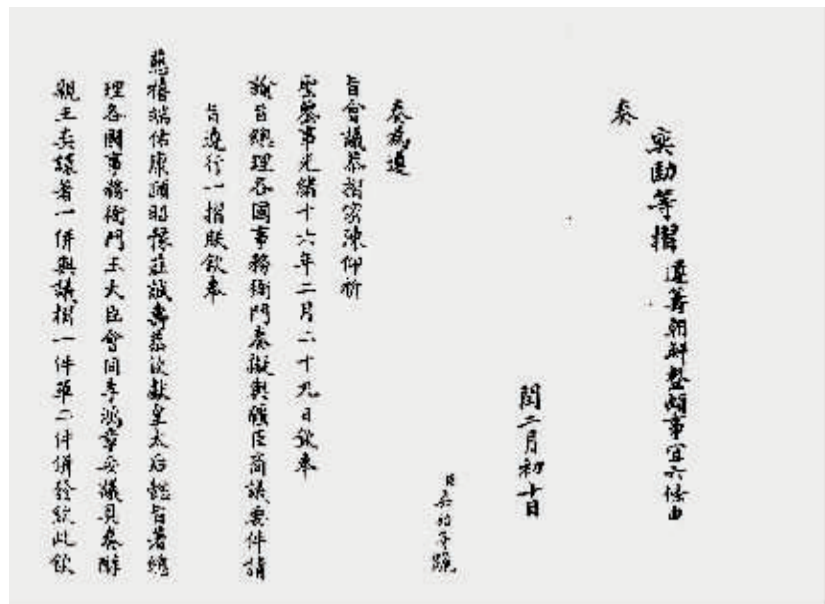 奏
奕劻等摺 遵籌朝鮮整頓事宜六條由
閏二月初十日
臣奕劻等跪
奏為遵
旨會議恭摺密陳仰祈
聖鑒事光緒十六年二月二十九日欽奉
諭旨總理各國事務衙門奏擬與醇臣商議要件請
旨遵行一摺朕欽奉
慈禧端佑康頤昭豫莊誠壽恭欽獻皇太后懿旨著總
理各國事務衙門王大臣會同李鴻章妥議具奏醇
親王奕譞著一併與議摺一件單二件併發欽此欽